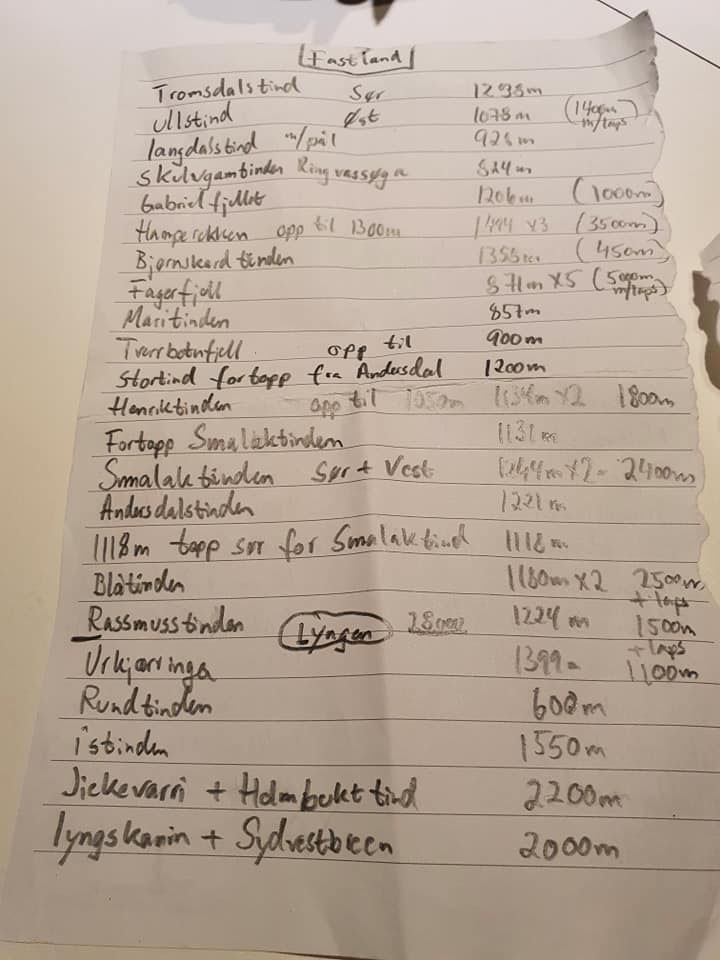 Fastland
Tromsdalstind Sør 1238m
Ullstind Øst 1078m (1400m m/laps)
langdalstind m/pål 928m
Skulvgamtinden Ringvassøya 824m
Gabrielfjellet 1206m (1000m)
Hamperokken opp til 1300m 1444 x3 (3500m)
Bjørnskardtinden 1355m (450m)
Fagerfjell 871m x5 (5000m m/laps)
Maritinden 857m
Tverrbotnfjell opp til 900m
Stortind fortopp fra Andersdal 1200m
Henriktinden opp til 1050m 1134m x2 1800m
Fortopp Smalaktinden 1131m
Smalaktinden Sør + Vest 1244m x2= 2400m
Andersdalstinden 1221m
1118m topp sør for Smalaktind 1118m
Blåtinden 1180m x2 2500m + laps
Rassmusstinden Lyngen 1224m 1500m + laps
Urkjærringa 1399m 1100m
Rundtinden 600m
istinden 1550m
Jiekevarri + Holmbukttind 2200m
lyngskanin + Sydvestbreen 2000m